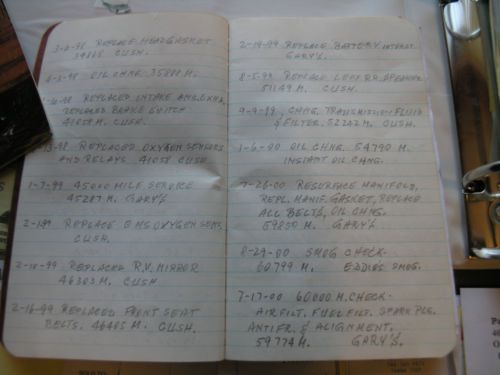 -6-98 REPLACE HEADGASKET
CUSH.
-98 OIL CHNG. 35880 M.
-98 REPLACED INTAKE AND EXHA.
REPLACED BRAKE SWITCH
41058 M. CUSH.
-13-98 REPLACED OXYGEN SENSORS
AND RELAYS. 41058 CUSH
1-7-99 45000 MILE SERVICE
45287 M. GARY'S
REPLACE OXYGEN SENS.
CUSH.
2-10-99 REPLACED R.V. MIRROR
46303 M. CUSH
2-16-99 REPLACED FRONT SEAT
BELTS. 46405 M. CUSH.
2-19-99 REPLACE BATTERY
GARY'S.
8-5-99 REPLACE LEFT RR SPEAKER
51149 M. CUSH.
9-9-99 CHNG. TRANSMISSION FLUID
& FILTER. 52242 M. CUSH.
-6-00 OIL CHNG. 54790 M.
INSTANT OIL CHNG.
-26-00 RESURFACE MANIFOLD,
REPL. MANIF. GASKET, REPLACE
ALL BELTS, OIL CHNG.
59250 M. GARY'S
8-29-00 SMOG CHECK-
60799 M. EDDIES SMOG.
7-17-00 60000 M. CHECK-
AIR FILT. FUEL FILT. SPARK PLG.
ANTIFR. & ALIGNMENT.
59774 M. GARY'S.